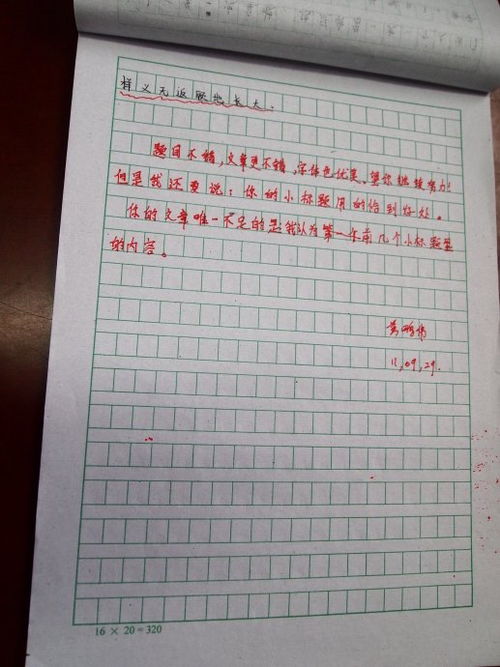 样义无返顾地长大。
题目不错,文章更不错,字体也优美,望你继续努力!
但是我还要说:你的小标题用的恰到好处。
你的文章唯一不足的是:我认为第一年前几个小标题里
的内容。
黄
11,09,29.
16 × 20 = 320